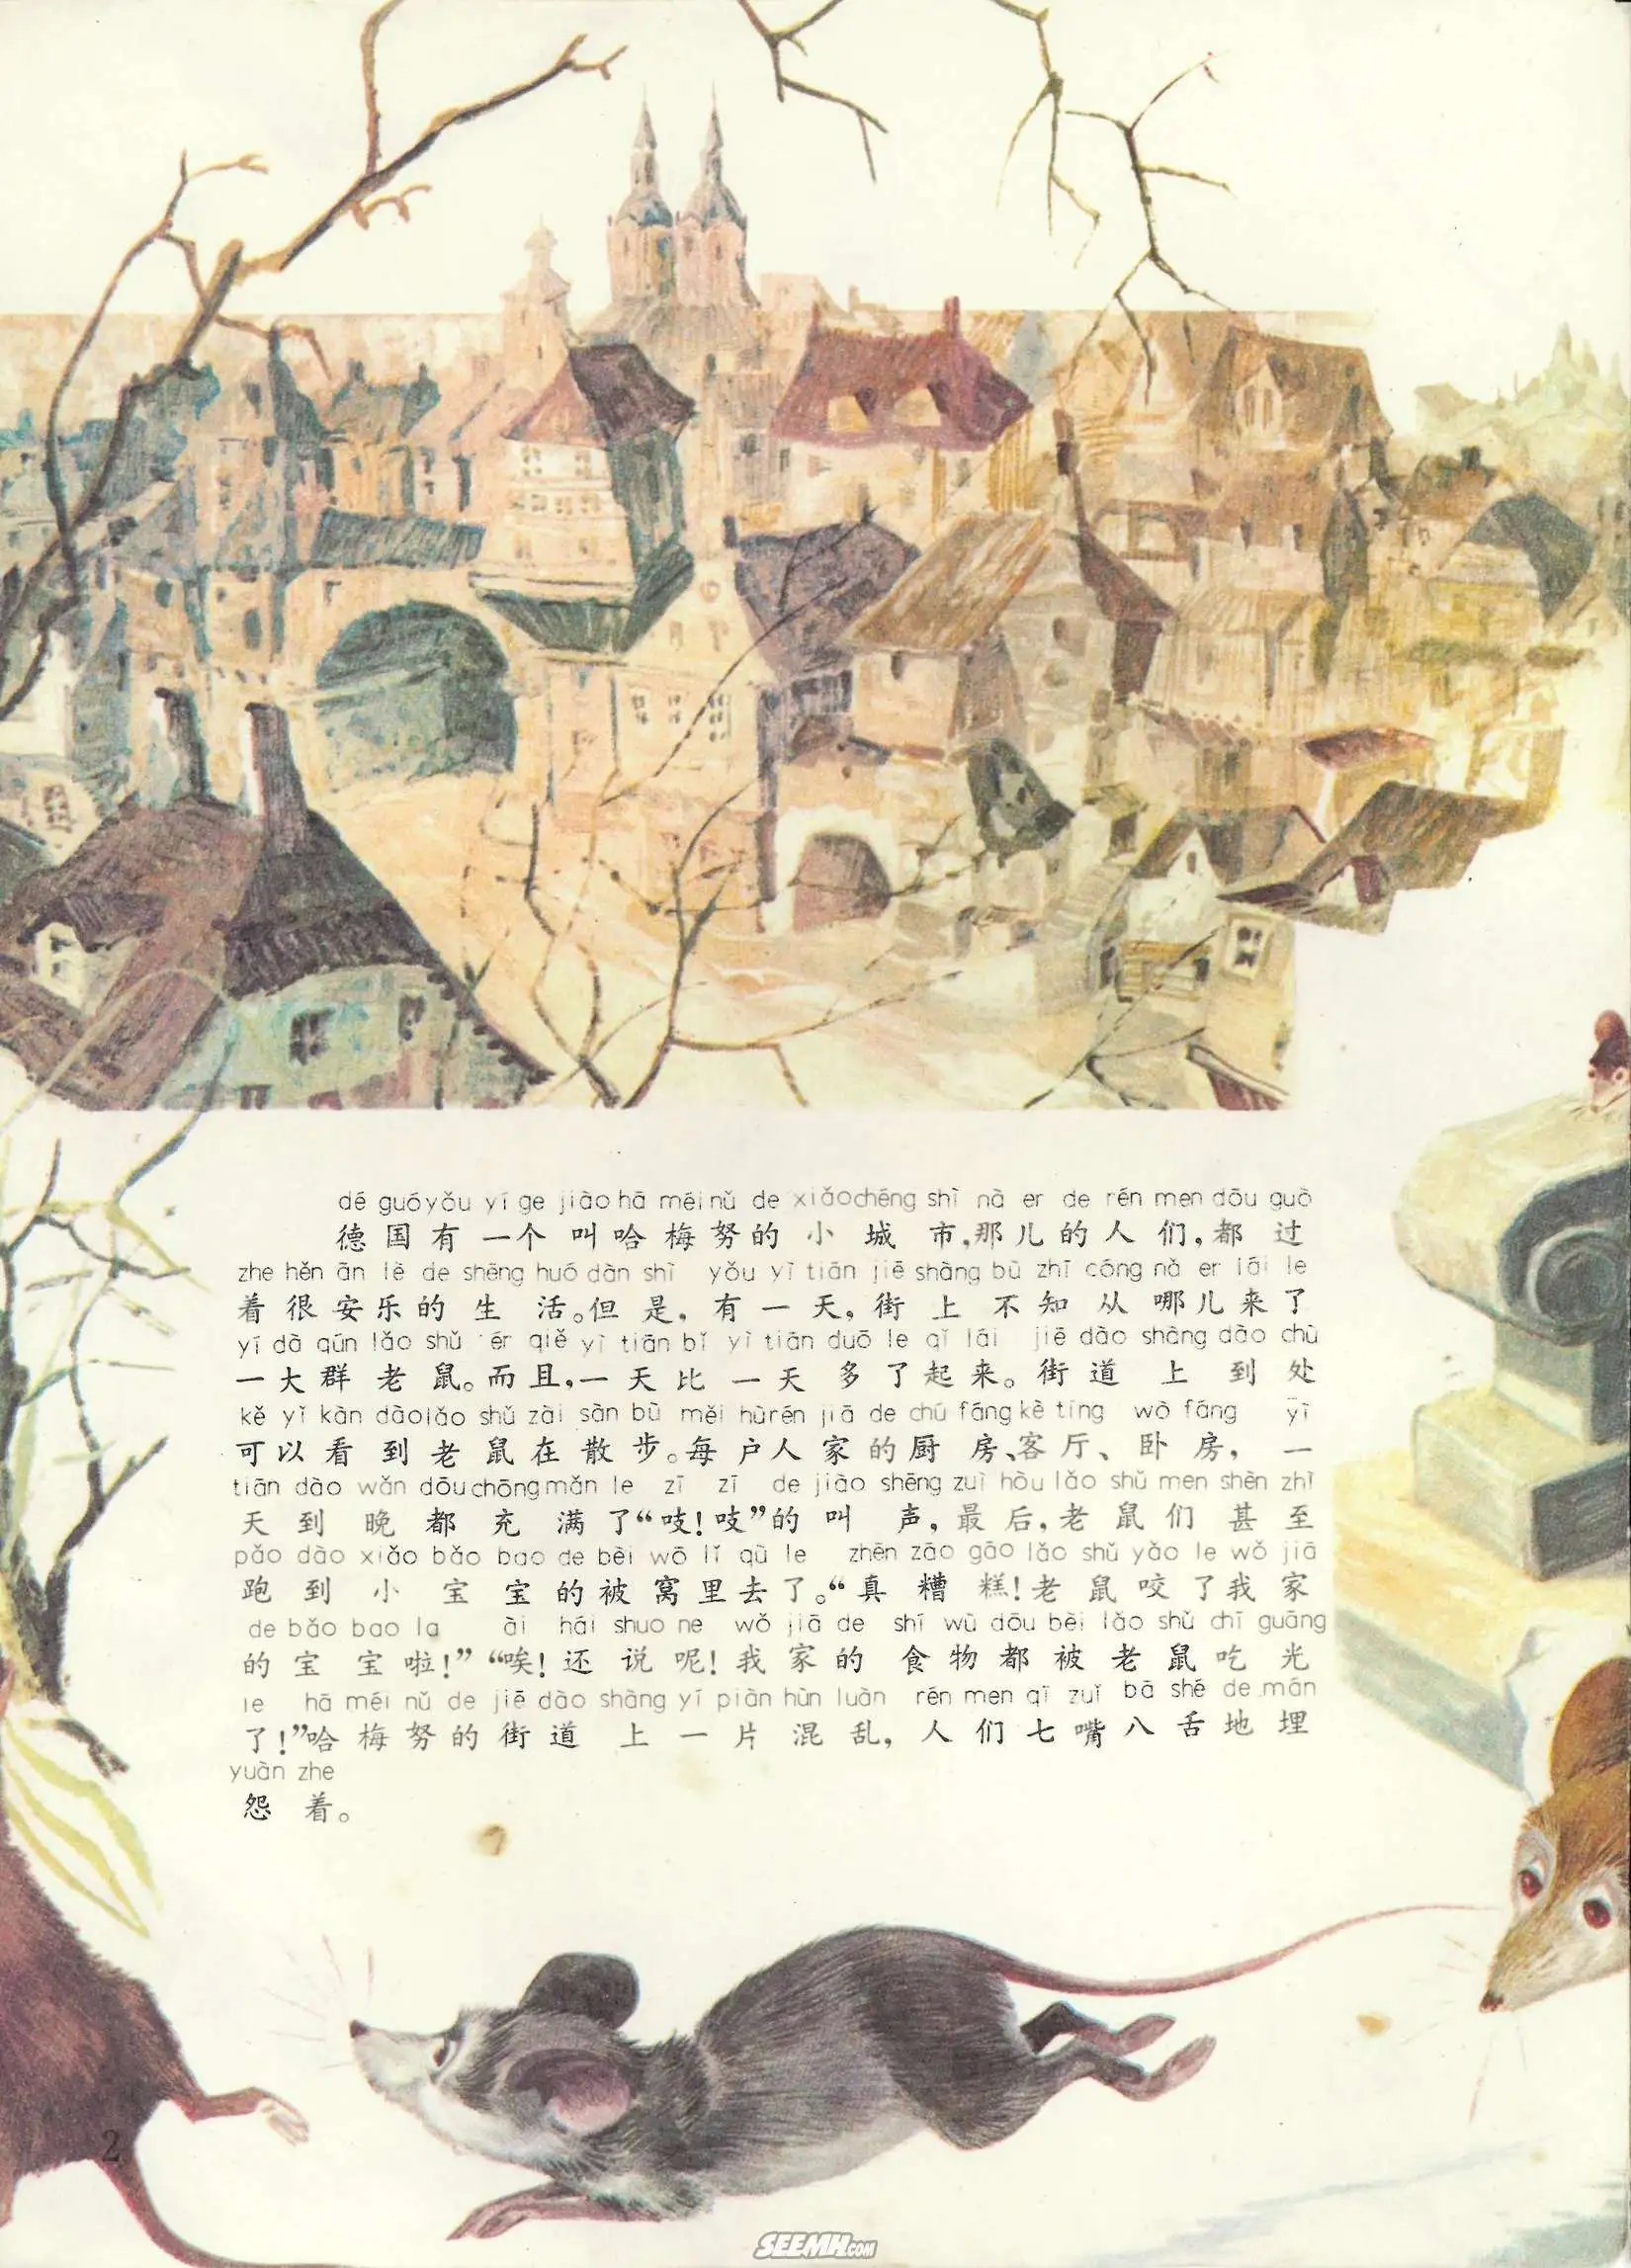 dé guó yǒu yí ge jiào hā méi nǔ de xiǎo chéng shì nà er de rén men dōu guò
德国有一个叫哈梅努的小城市,那儿的人们,都过
zhe hěn ān lè de shēng huó dàn shì yǒu yì tiān jiē shàng bù zhī cóng nǎ er lái le
着很安乐的生活。但是,有一天,街上不知从哪儿来了
yí dà qún lǎo shǔ ér qiě yì tiān bǐ yì tiān duō le qǐ lái jiē dào shàng dào chù
一大群老鼠。而且,一天比一天多了起来。街道上到处
kě yǐ kàn dào lǎo shǔ zài sàn bù měi hù rén jiā de chú fáng kè tīng wò fáng yī
可以看到老鼠在散步。每户人家的厨房、客厅、卧房,一
tiān dào wǎn dōu chōng mǎn le zī zī de jiào shēng zuì hòu lǎo shǔ men shèn zhì
天到晚都充满了“吱!吱”的叫声,最后,老鼠们甚至
pǎo dào xiǎo bǎo bao de bèi wō lǐ qù le zhēn zāo gāo lǎo shǔ yǎo le wǒ jiā
跑到小宝宝的被窝里去了。“真糟糕!老鼠咬了我家
de bǎo bao la ài hái shuo ne wǒ jiā de shí wù dōu bèi lǎo shǔ chī guāng
的宝宝啦!”“唉!还说呢!我家的食物都被老鼠吃光
le hā méi nǔ de jiē dào shàng yí piàn hùn luàn rén men qī zuǐ bā shé de mán
了!”哈梅努的街道上一片混乱,人们七嘴八舌地埋
yuàn zhe
怨着。
2
SEEMH.COM